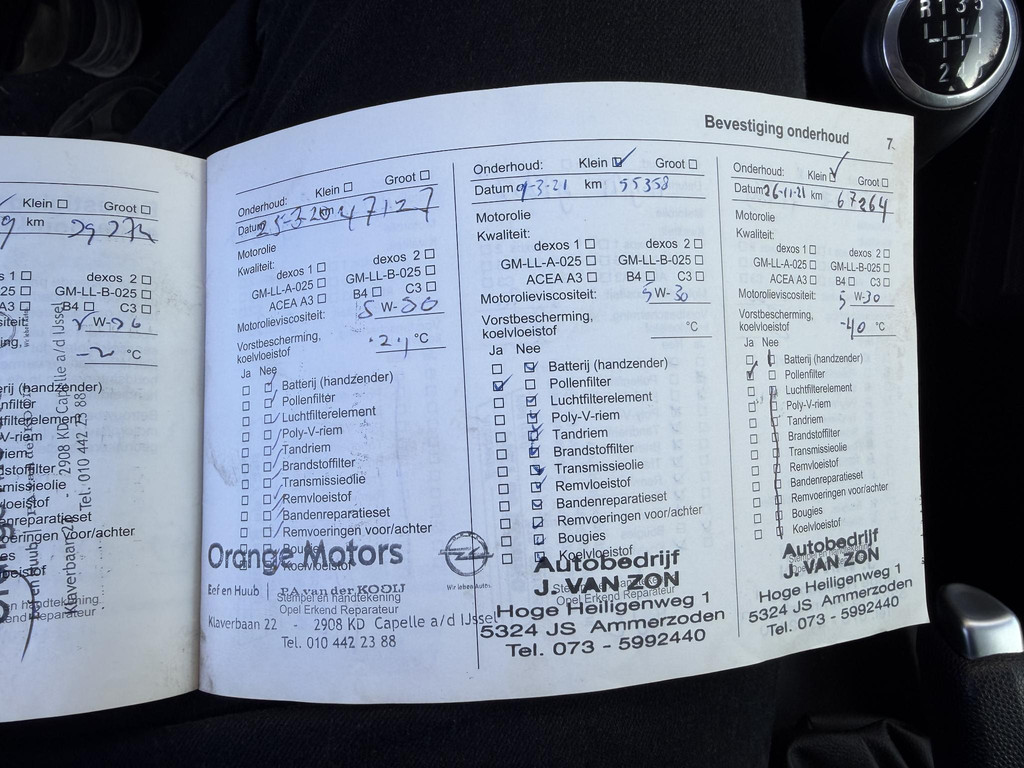 R 1 3 5
2 4
Bevestiging onderhoud 7
Klein Groot
km 29 27
s 1 dexos 2
-025 GM-LL-B-025
A3 B4 C3
siteit: W-
ing,
°C
rij (handzender)
nfilter
filterelement
-V-riem
riem
dstoffilter
smissieolie
loeistof
enreparatieset
oeringen voor/achter
es
oeistof
en handtekening
end Reparateur
Klaverbaan 22 - 2908 KD Capelle a/d IJssel
Tel. 010 442 23 88
Onderhoud: Klein Groot
Datum 25-3-20 km 47127
Motorolie
Kwaliteit:
dexos 1 dexos 2
GM-LL-A-025 GM-LL-B-025
ACEA A3 B4 C3
Motorolieviscositeit: 5 W-30
Vorstbescherming,
koelvloeistof °C
Ja Nee
Batterij (handzender)
Pollenfilter
Luchtfilterelement
Poly-V-riem
Tandriem
Brandstoffilter
Transmissieolie
Remvloeistof
Bandenreparatieset
Remvoeringen voor/achter
Bougies
Koelvloeistof
Orange Motors
Eef en Huub | P.A van der KOOIJ
Wir leben Autos.
Stempel en handtekening
Opel Erkend Reparateur
Klaverbaan 22 - 2908 KD Capelle a/d IJssel
Tel. 010 442 23 88
Onderhoud: Klein Groot
Datum 9-3-21 km 55358
Motorolie
Kwaliteit:
dexos 1 dexos 2
GM-LL-A-025 GM-LL-B-025
ACEA A3 B4 C3
Motorolieviscositeit: 5 W-30
Vorstbescherming,
koelvloeistof °C
Ja Nee
Batterij (handzender)
Pollenfilter
Luchtfilterelement
Poly-V-riem
Tandriem
Brandstoffilter
Transmissieolie
Remvloeistof
Bandenreparatieset
Remvoeringen voor/achter
Bougies
Koelvloeistof
Autobedrijf
J. VAN ZON
Opel Erkend Reparateur
Hoge Heiligenweg 1
5324 JS Ammerzoden
Tel. 073 - 5992440
Onderhoud: Klein Groot
Datum 26-11-21 km 67264
Motorolie
Kwaliteit:
dexos 1 dexos 2
GM-LL-A-025 GM-LL-B-025
ACEA A3 B4 C3
Motorolieviscositeit: 5 W-30
Vorstbescherming,
koelvloeistof -40 °C
Ja Nee
Batterij (handzender)
Pollenfilter
Luchtfilterelement
Poly-V-riem
Tandriem
Brandstoffilter
Transmissieolie
Remvloeistof
Bandenreparatieset
Remvoeringen voor/achter
Bougies
Koelvloeistof
Autobedrijf
J. VAN ZON
Opel Erkend Reparateur
Hoge Heiligenweg 1
5324 JS Ammerzoden
Tel. 073 - 5992440